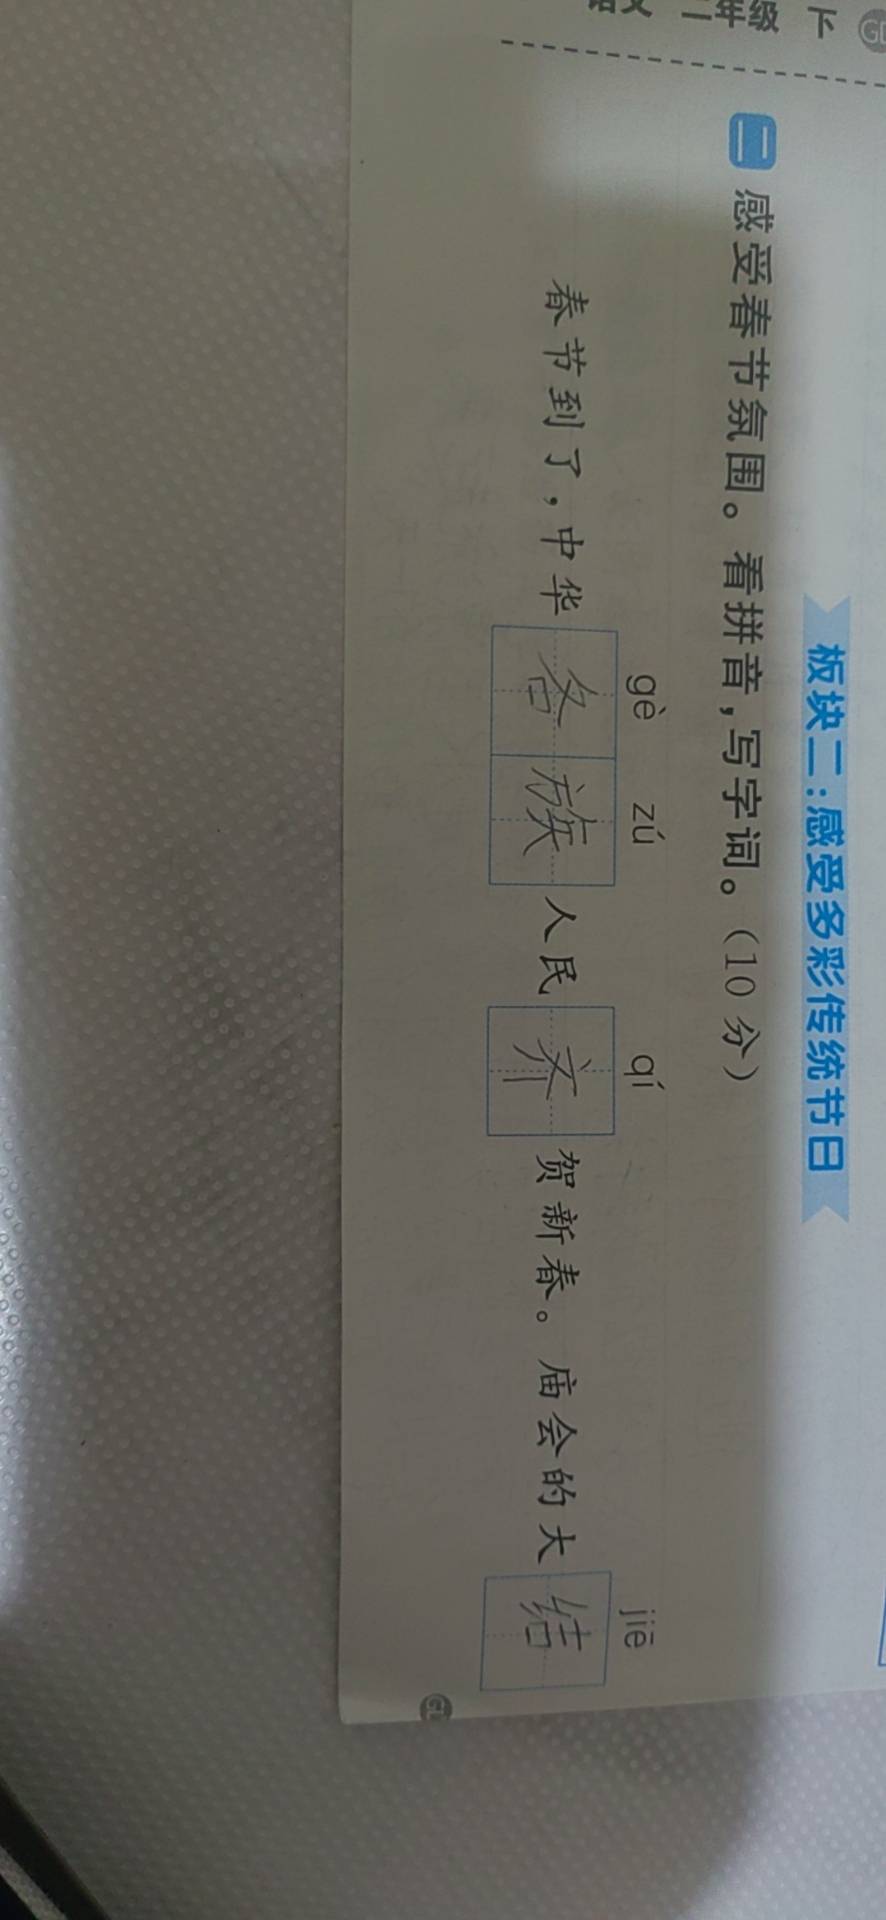 语文 二年级 下
板块二：感受多彩传统节日
二 感受春节氛围。看拼音，写字词。（10分）
gè zú qí jiē
春节到了，中华各族人民齐贺新春。庙会的大结